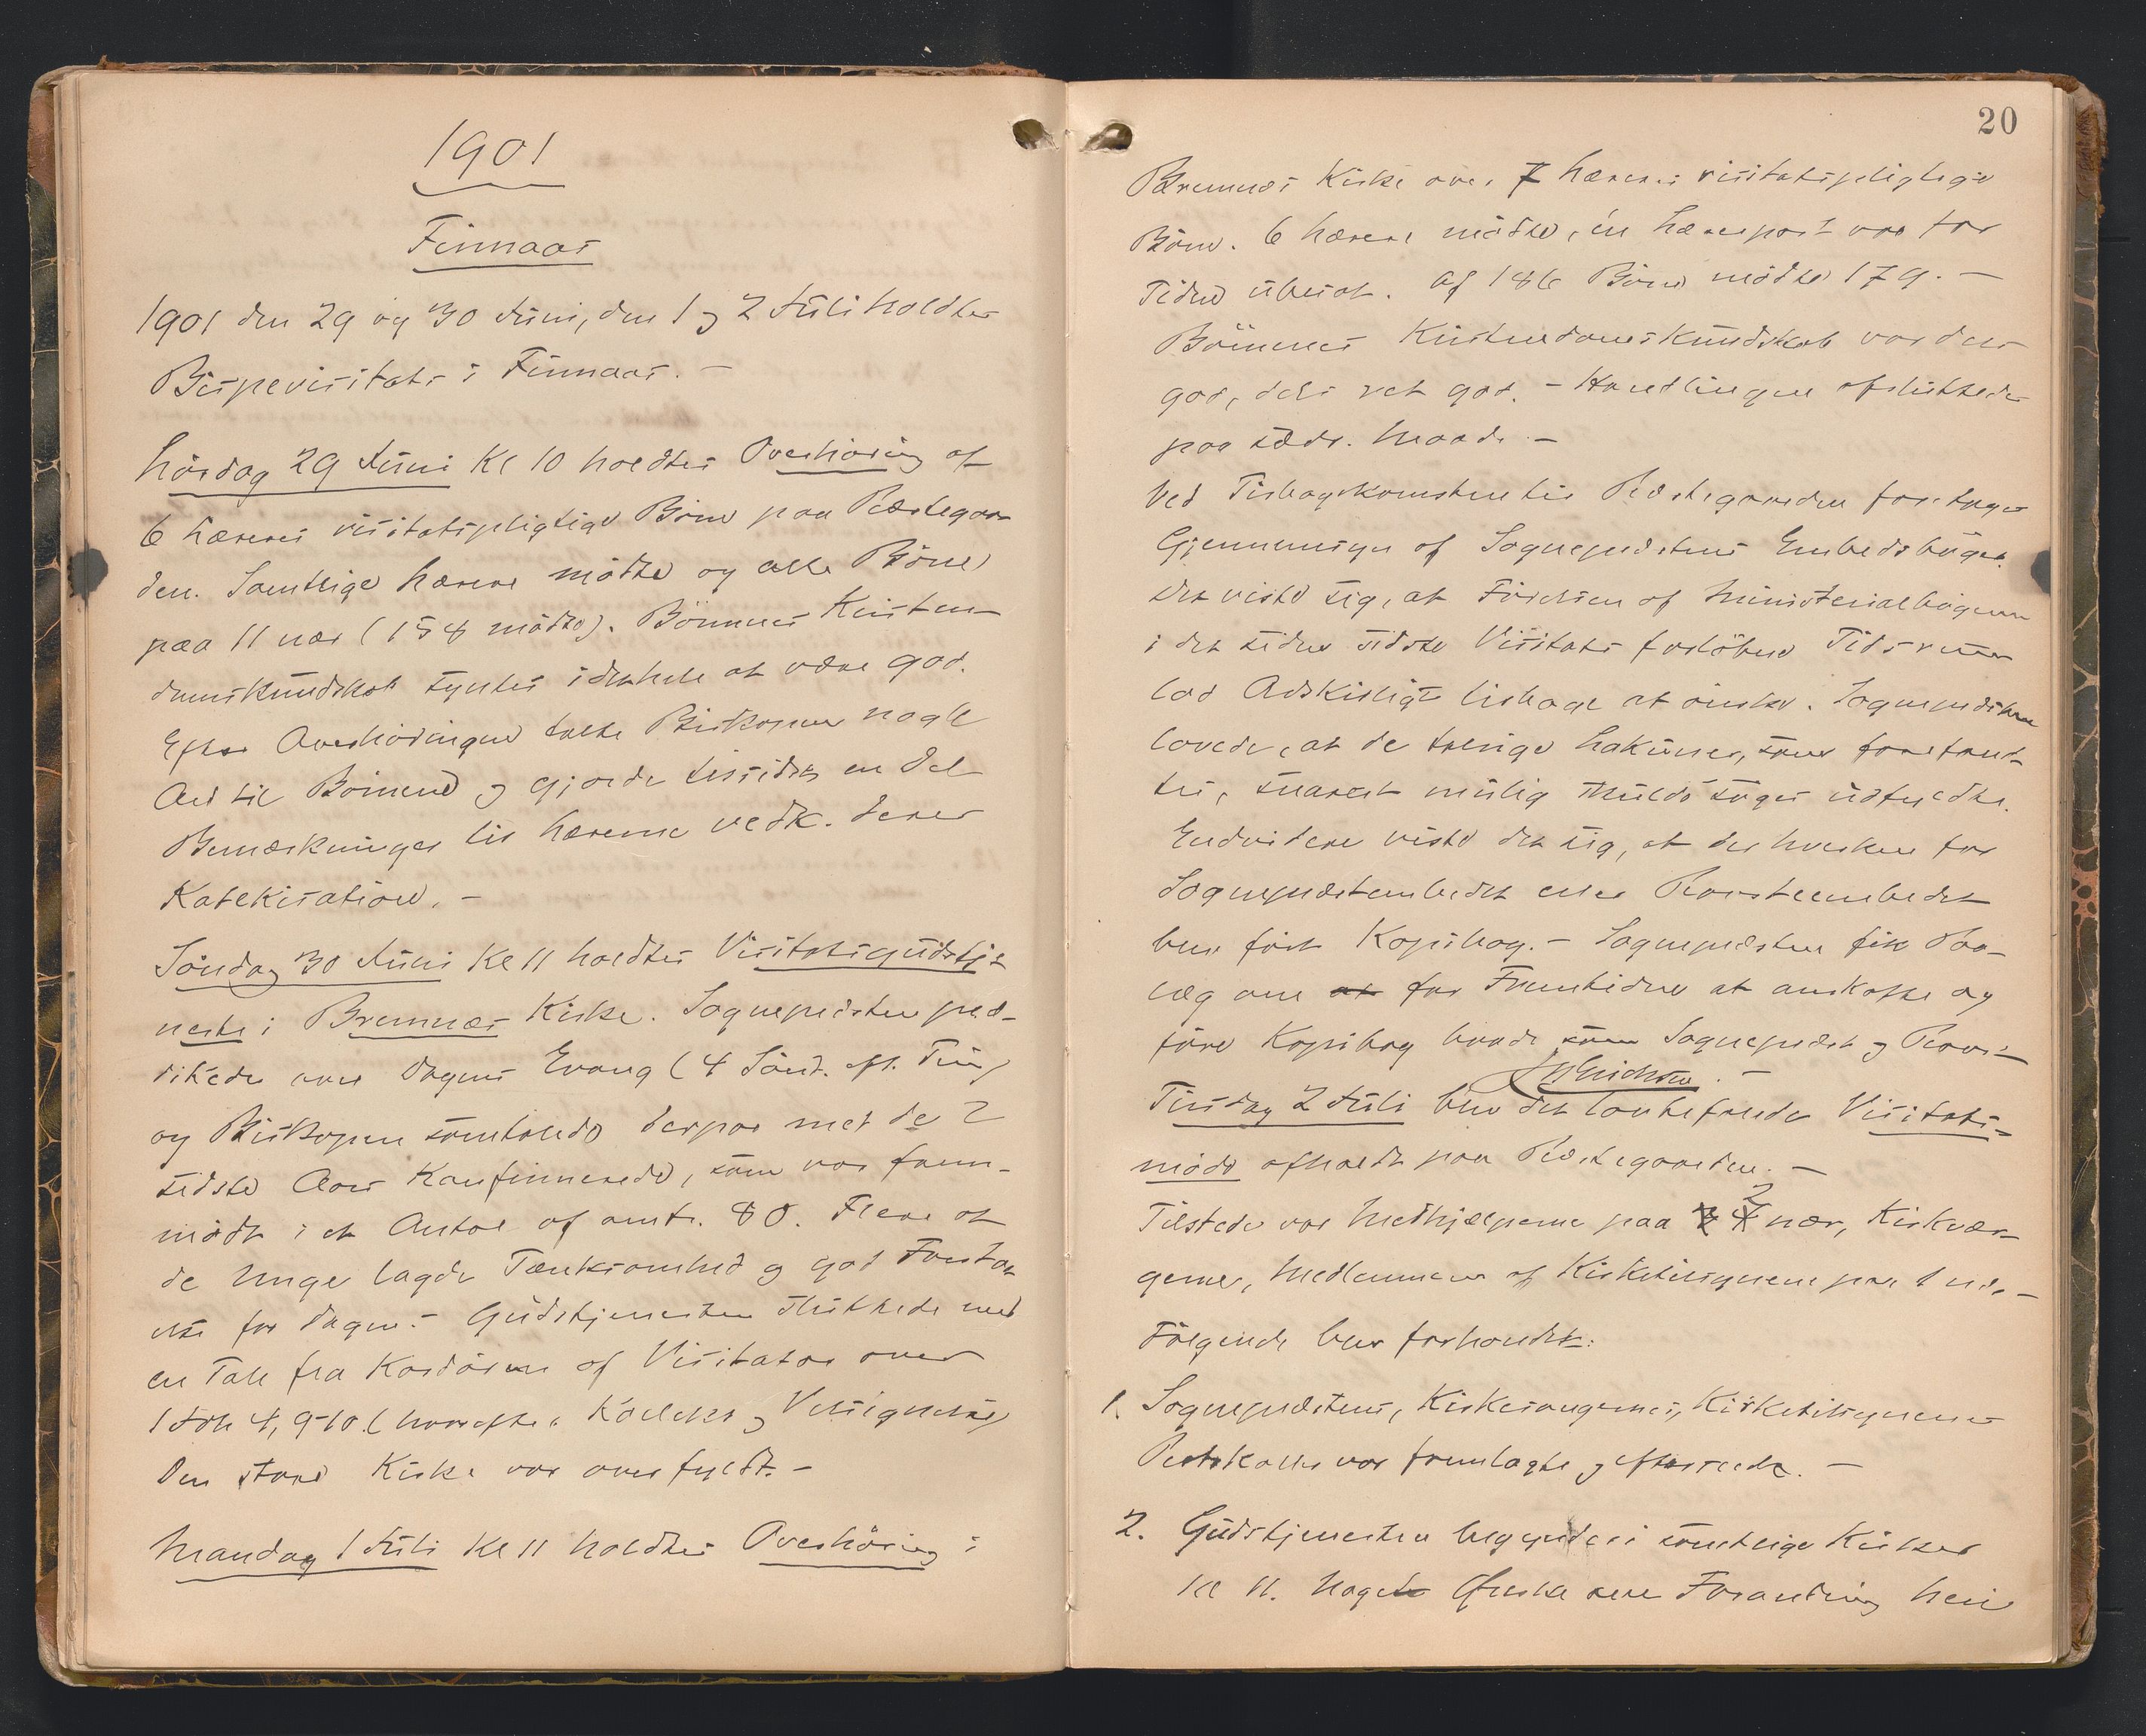 1901
Finnaas
1901 den 29 og 30 Juni, den 1 og 2 Juli holdtes
Bispevisitats i Finnaas. –
Lørdag 29 Juni Kl 10 holdtes Overhøring af
6 Læreres visitatspligtige Børn paa Præstegaar-
den. Samtlige Lærere mødte og alle Børn
paa 11 nær (154 mødte). Børnenes Kristen-
domskundskab syntes i det hele at være god.
Efter Overhøringen talte Biskopen nogle
Ord til Børnene og gjorde tilsidst en Del
Bemærkninger til Lærerne vedk. deres
Katekisation. –
Søndag 30 Juni Kl 11 holdtes Visitatsgudstje-
neste i Bremnæs Kirke. Sognepræsten præ-
dikede over Dagens Evang (4 Sønd. eft. Trin)
og Biskopen samtalede derpaa med de 2
sidste Aars Konfirmerede, som var frem-
mødt i et Antal af omtr. 80. Flere af
de Unge lagde Tænksomhed og god Forstaa-
else for Dagen. – Gudstjenesten sluttede med
en Tale fra Kordøren af Visitator over
1 Joh 4, 9-10. (hvorefter Kollekt og Velsignelse)
Den store Kirke var overfyldt. –
Mandag 1 Juli Kl 11 holdtes Overhøring i
20
Bremnæs Kirke over 7 Læreres visitatspligtige
Børn. 6 Lærere mødte, én Lærerpost var for
Tiden ubesat. Af 186 Børn mødte 179. –
Børnenes Kristendomskundskab var dels
god, dels ret god. – Handlingen afsluttedes
paa sædv. Maade. –
Ved Tilbagekomsten til Præstegaarden foretoges
Gjennemsyn af Sognepræstens Embedsbøger.
Det viste sig, at Førelsen af Ministerialbøgerne
i det siden sidste Visitats forløbne Tidsrum
lod Adskilligt tilbage at ønske. Sognepræsten
lovede, at de talrige Lakuner, som forefand-
tes, snarest mulig skulde søges udfyldte.
Endvidere viste det sig, at der hverken for
Sognepræstembedet eller Provsteembedet
blev ført Kopibog. – Sognepræsten fik Paa-
læg om at for Fremtiden at anskaffe og
føre Kopibog baade som Sognepræst og Provst
Erichsen. –
Tirsdag 2 Juli blev det lovbefalede Visitats-
møde afholdt paa Præstegaarden. –
2
Tilstede var Medhjælperne paa 4 nær, Kirkevær-
gerne, Medlemmer af Kirketilsynene paa 1 nær –
Følgende blev forhandlet:
1. Sognepræstens, Kirkesangernes, Kirketilsynenes
Protokoller var fremlagte og eftersaaede. –
2. Gudstjenesten begynder i samtlige Kirker
Kl 11. Noget Ønske om Forandring heri